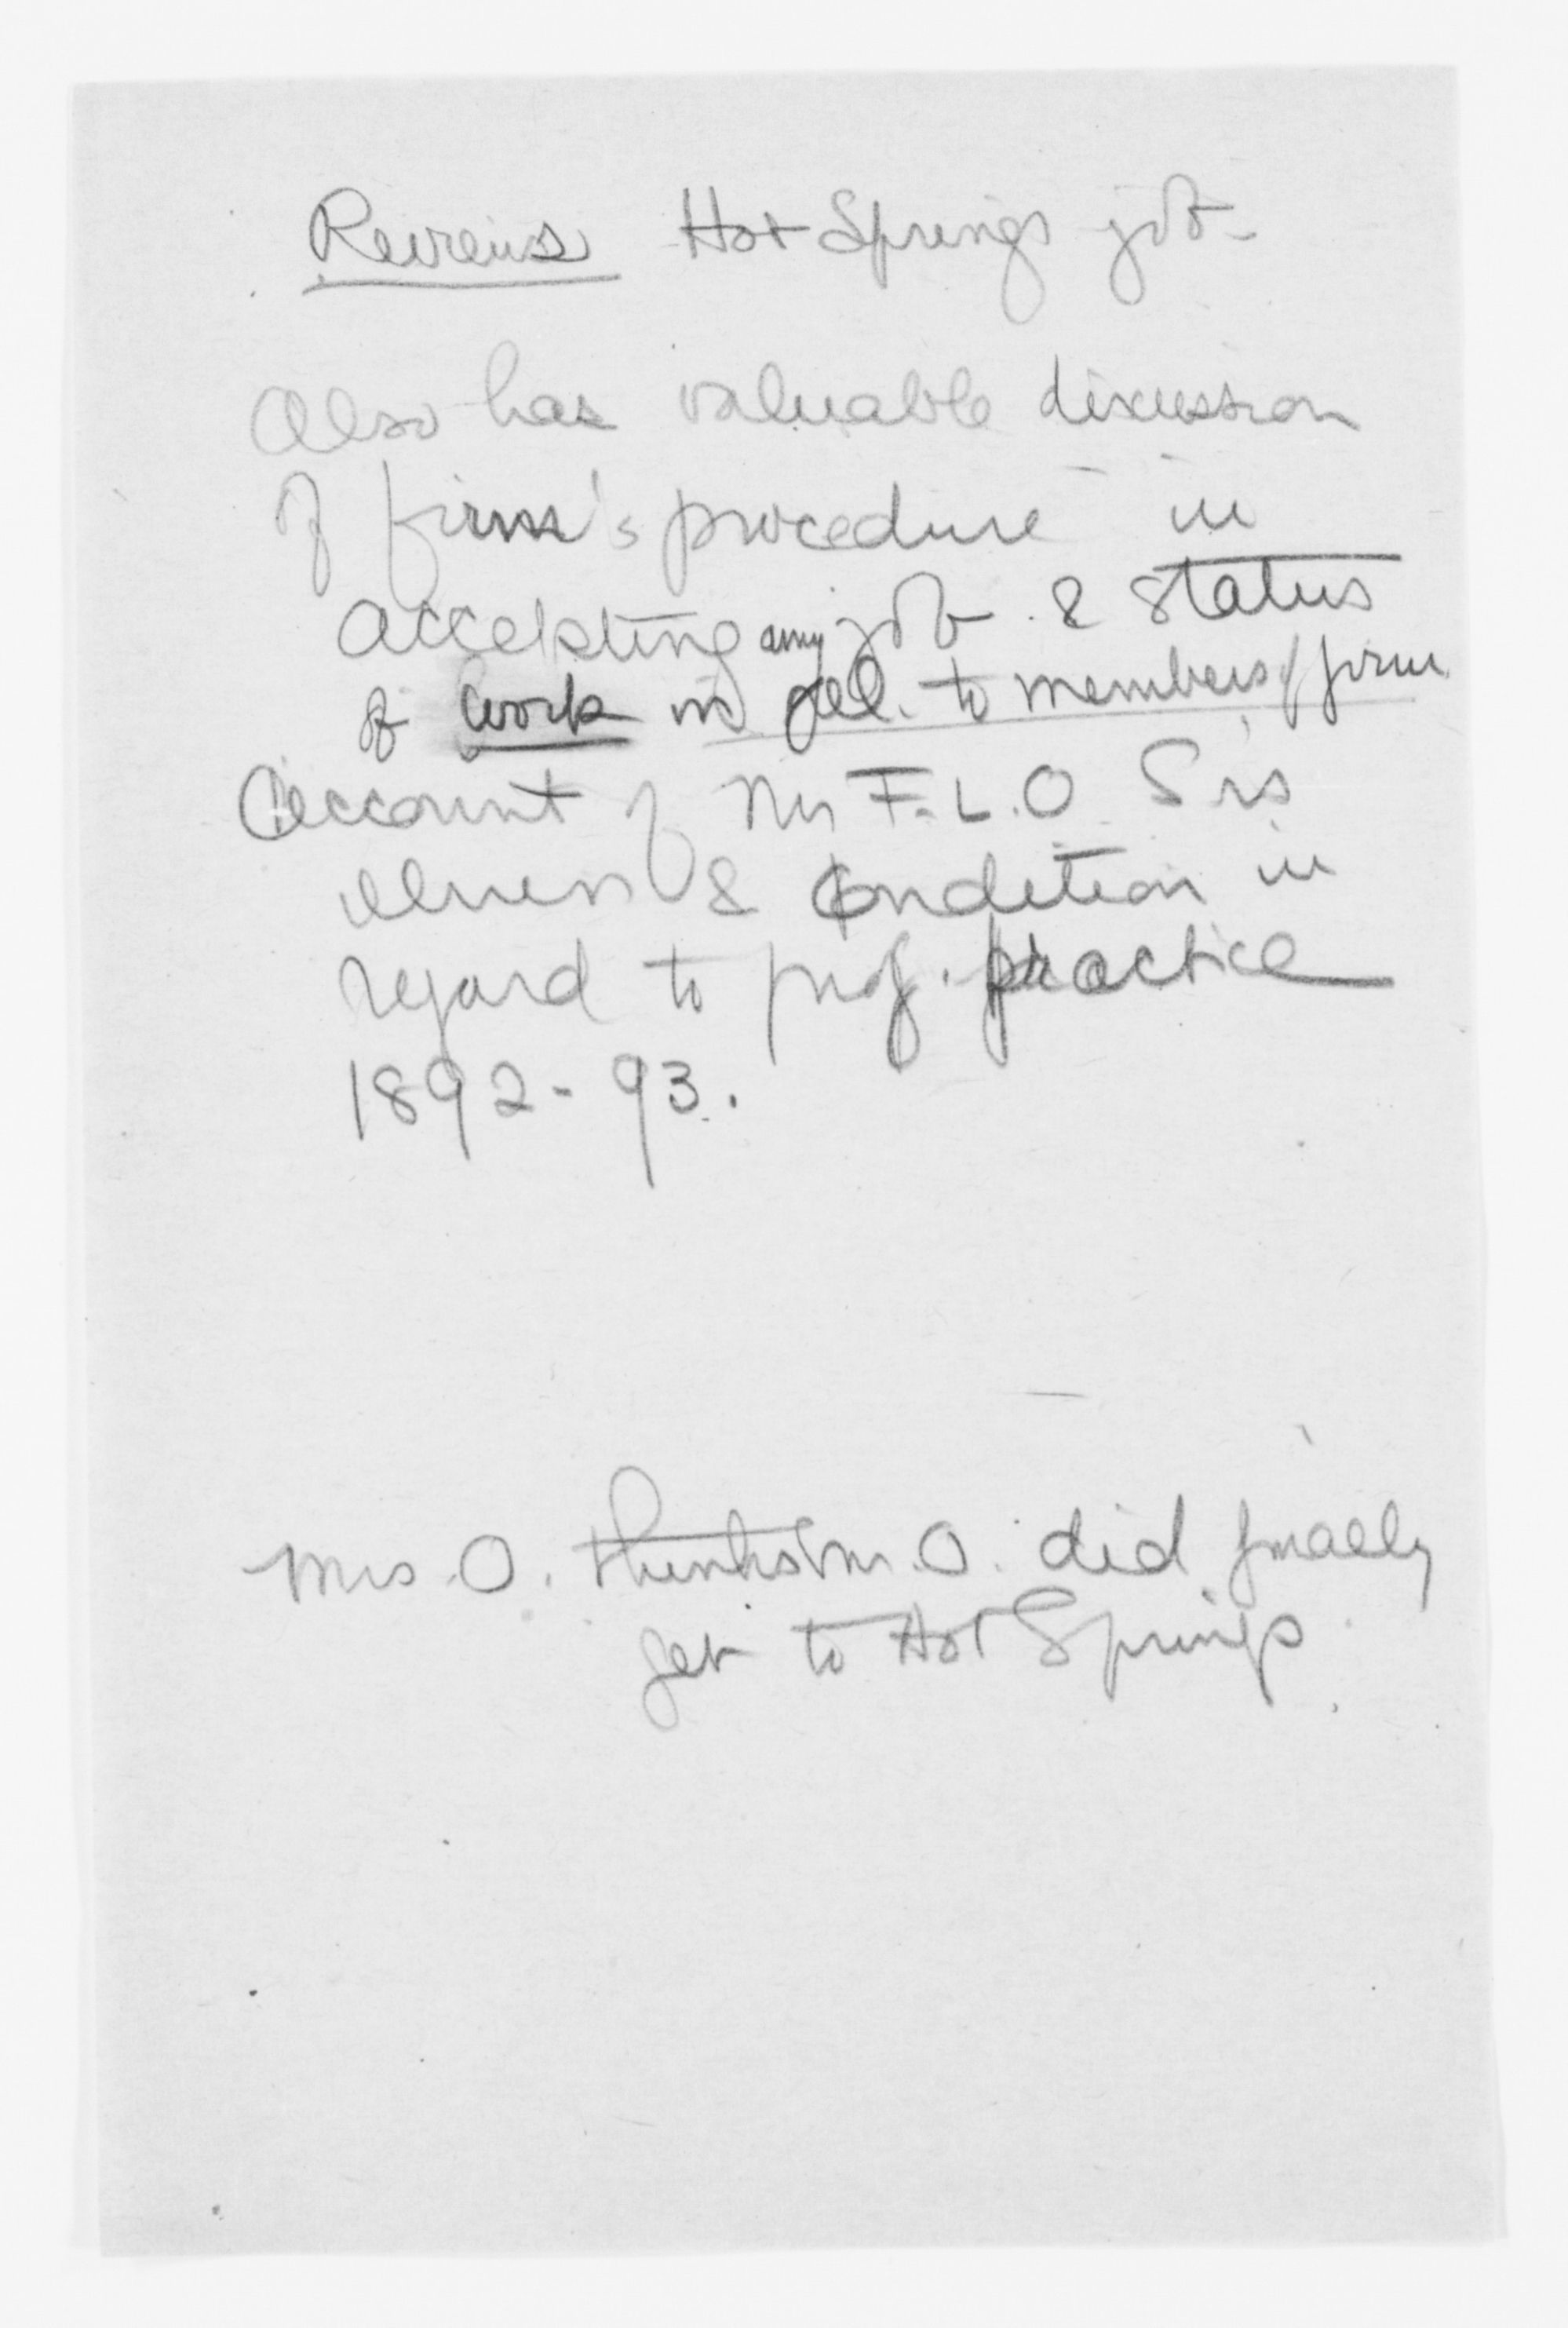 Reviews Hot Springs job
Also has valuable discussion
of firm's procedure in
accepting any job & status
of work in rel. to members of firm
Account of Mr F. L. O. Srs
illness & condition in
regard to prof. practice
1892-93.
Mrs O. thinks Mr. O. did finally
get to Hot Springs